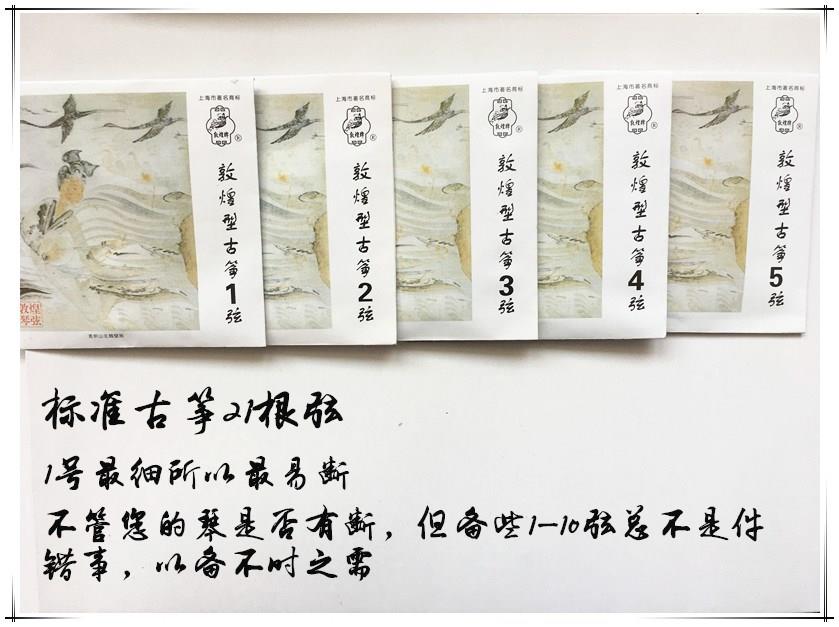 上海市著名商标
敦煌牌
®
敦煌型古筝1弦
敦煌琴弦
上海市著名商标
敦煌牌
®
敦煌型古筝2弦
上海市著名商标
敦煌牌
®
敦煌型古筝3弦
上海市著名商标
敦煌牌
®
敦煌型古筝4弦
上海市著名商标
敦煌牌
®
敦煌型古筝5弦
标准古筝21根弦
1号最细所以最易断
不管您的琴是否有断，但备些1-10弦总不是件
错事，以备不时之需